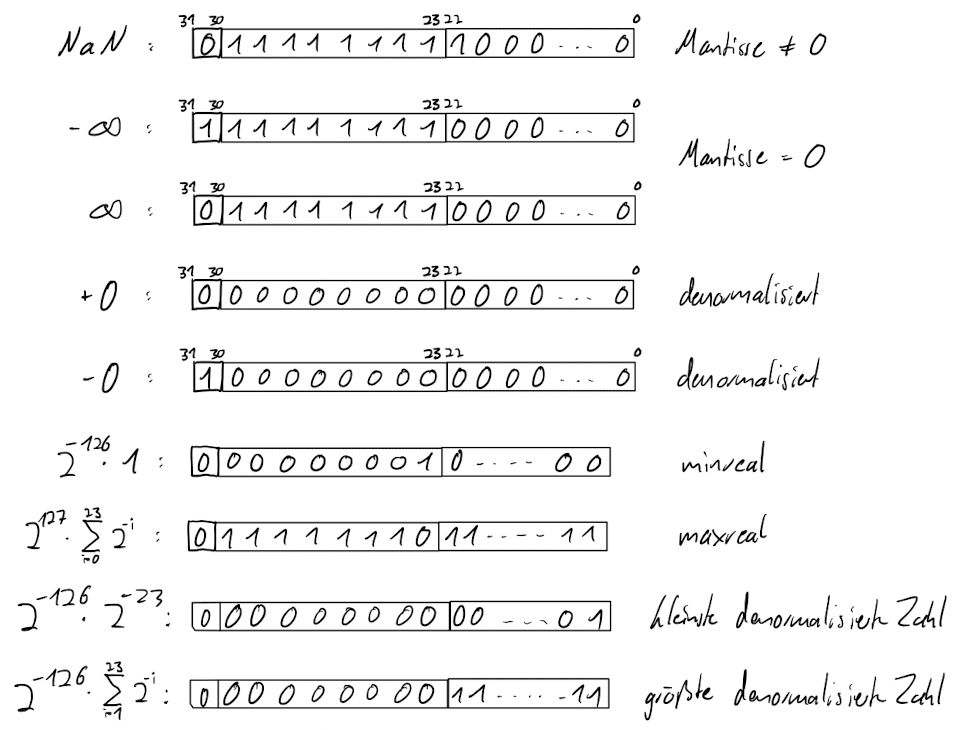 31 30 23 22 0
NaN : 0 1 1 1 1 1 1 1 1 1 0 0 0 ... 0 Mantisse ≠ 0
31 30 23 22 0
-∞ : 1 1 1 1 1 1 1 1 1 0 0 0 0 ... 0
Mantisse = 0
31 30 23 22 0
∞ : 0 1 1 1 1 1 1 1 1 0 0 0 0 ... 0
31 30 23 22 0
+0 : 0 0 0 0 0 0 0 0 0 0 0 0 0 ... 0 denormalisiert
31 30 23 22 0
-0 : 1 0 0 0 0 0 0 0 0 0 0 0 0 ... 0 denormalisiert
2^-126 · 1 : 0 0 0 0 0 0 0 0 1 0 ---- 0 0 minreal
2^127 · ∑_{i=0}^{23} 2^-i : 0 1 1 1 1 1 1 1 0 1 1 ---- 1 1 maxreal
2^-126 · 2^-23 : 0 0 0 0 0 0 0 0 0 0 0 ---- 0 1 kleinste denormalisierte Zahl
2^-126 · ∑_{i=1}^{23} 2^-i : 0 0 0 0 0 0 0 0 0 1 1 ----- 1 1 größte denormalisierte Zahl